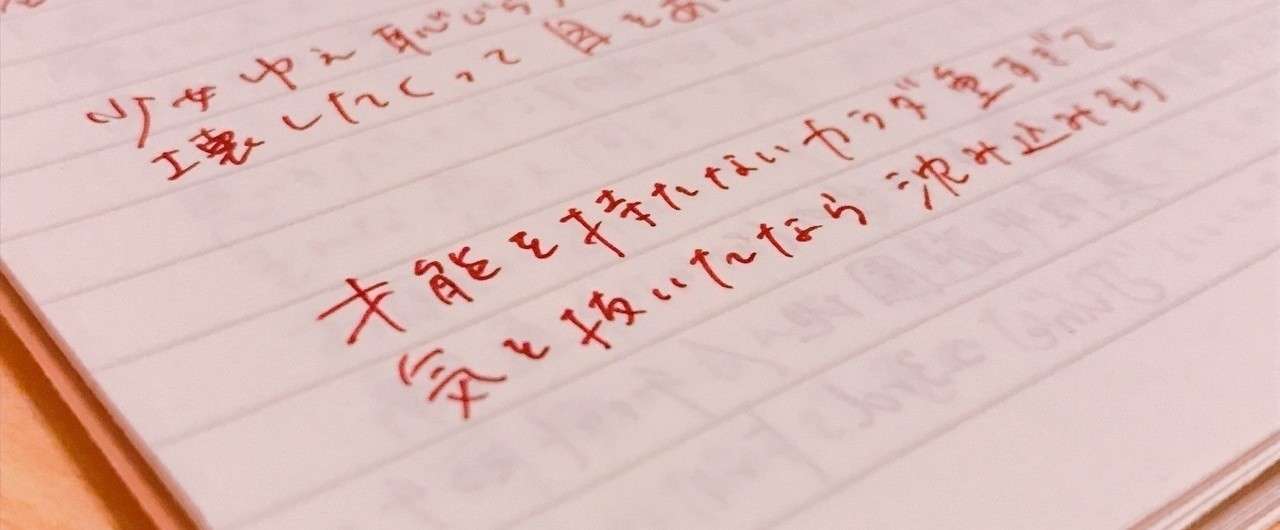 少女ゆえ恥じら
壊したくって目をあ
才能を持たないカラダ重すぎて
気を抜いたなら沈み込みそう